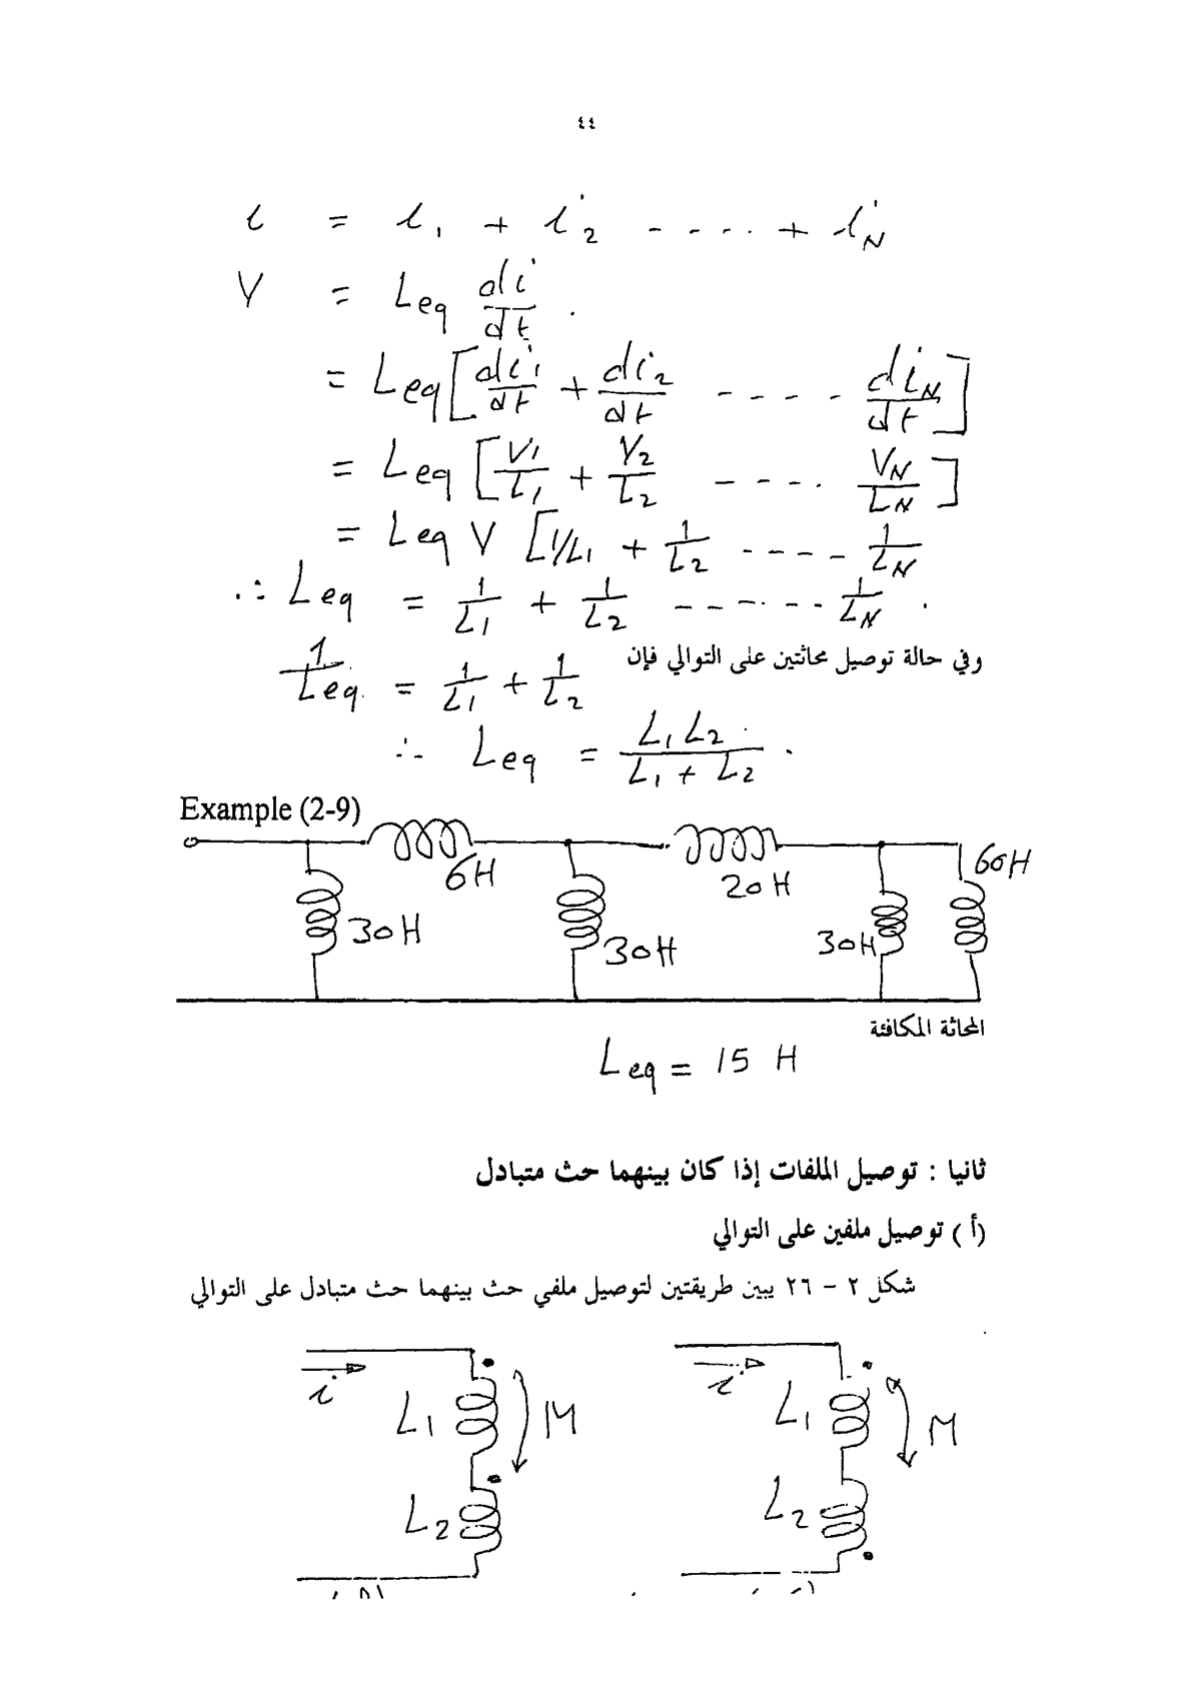 ٤٤
i = i₁ + i₂ - - - - + i_N
V = Leq di/dt .
= Leq [di₁/dt + di₂/dt - - - - di_N/dt]
= Leq [V₁/L₁ + V₂/L₂ - - - - V_N/L_N]
= Leq V [1/L₁ + 1/L₂ - - - - 1/L_N
∴ Leq = 1/L₁ + 1/L₂ - - - - - - 1/L_N .
وفي حالة توصيل محاثتين على التوالي فإن
1/Leq. = 1/L₁ + 1/L₂
∴ Leq = L₁ L₂ / L₁ + L₂ .
Example (2-9)
6H 20H 60H
30H 30H 30H
المحاثة المكافئة
Leq = 15 H
ثانيا : توصيل الملفات إذا كان بينهما حث متبادل
(أ ) توصيل ملفين على التوالي
شكل ٢ – ٢٦ يبين طريقتين لتوصيل ملفي حث بينهما حث متبادل على التوالي
i i
L₁ M L₁ M
L₂ L₂